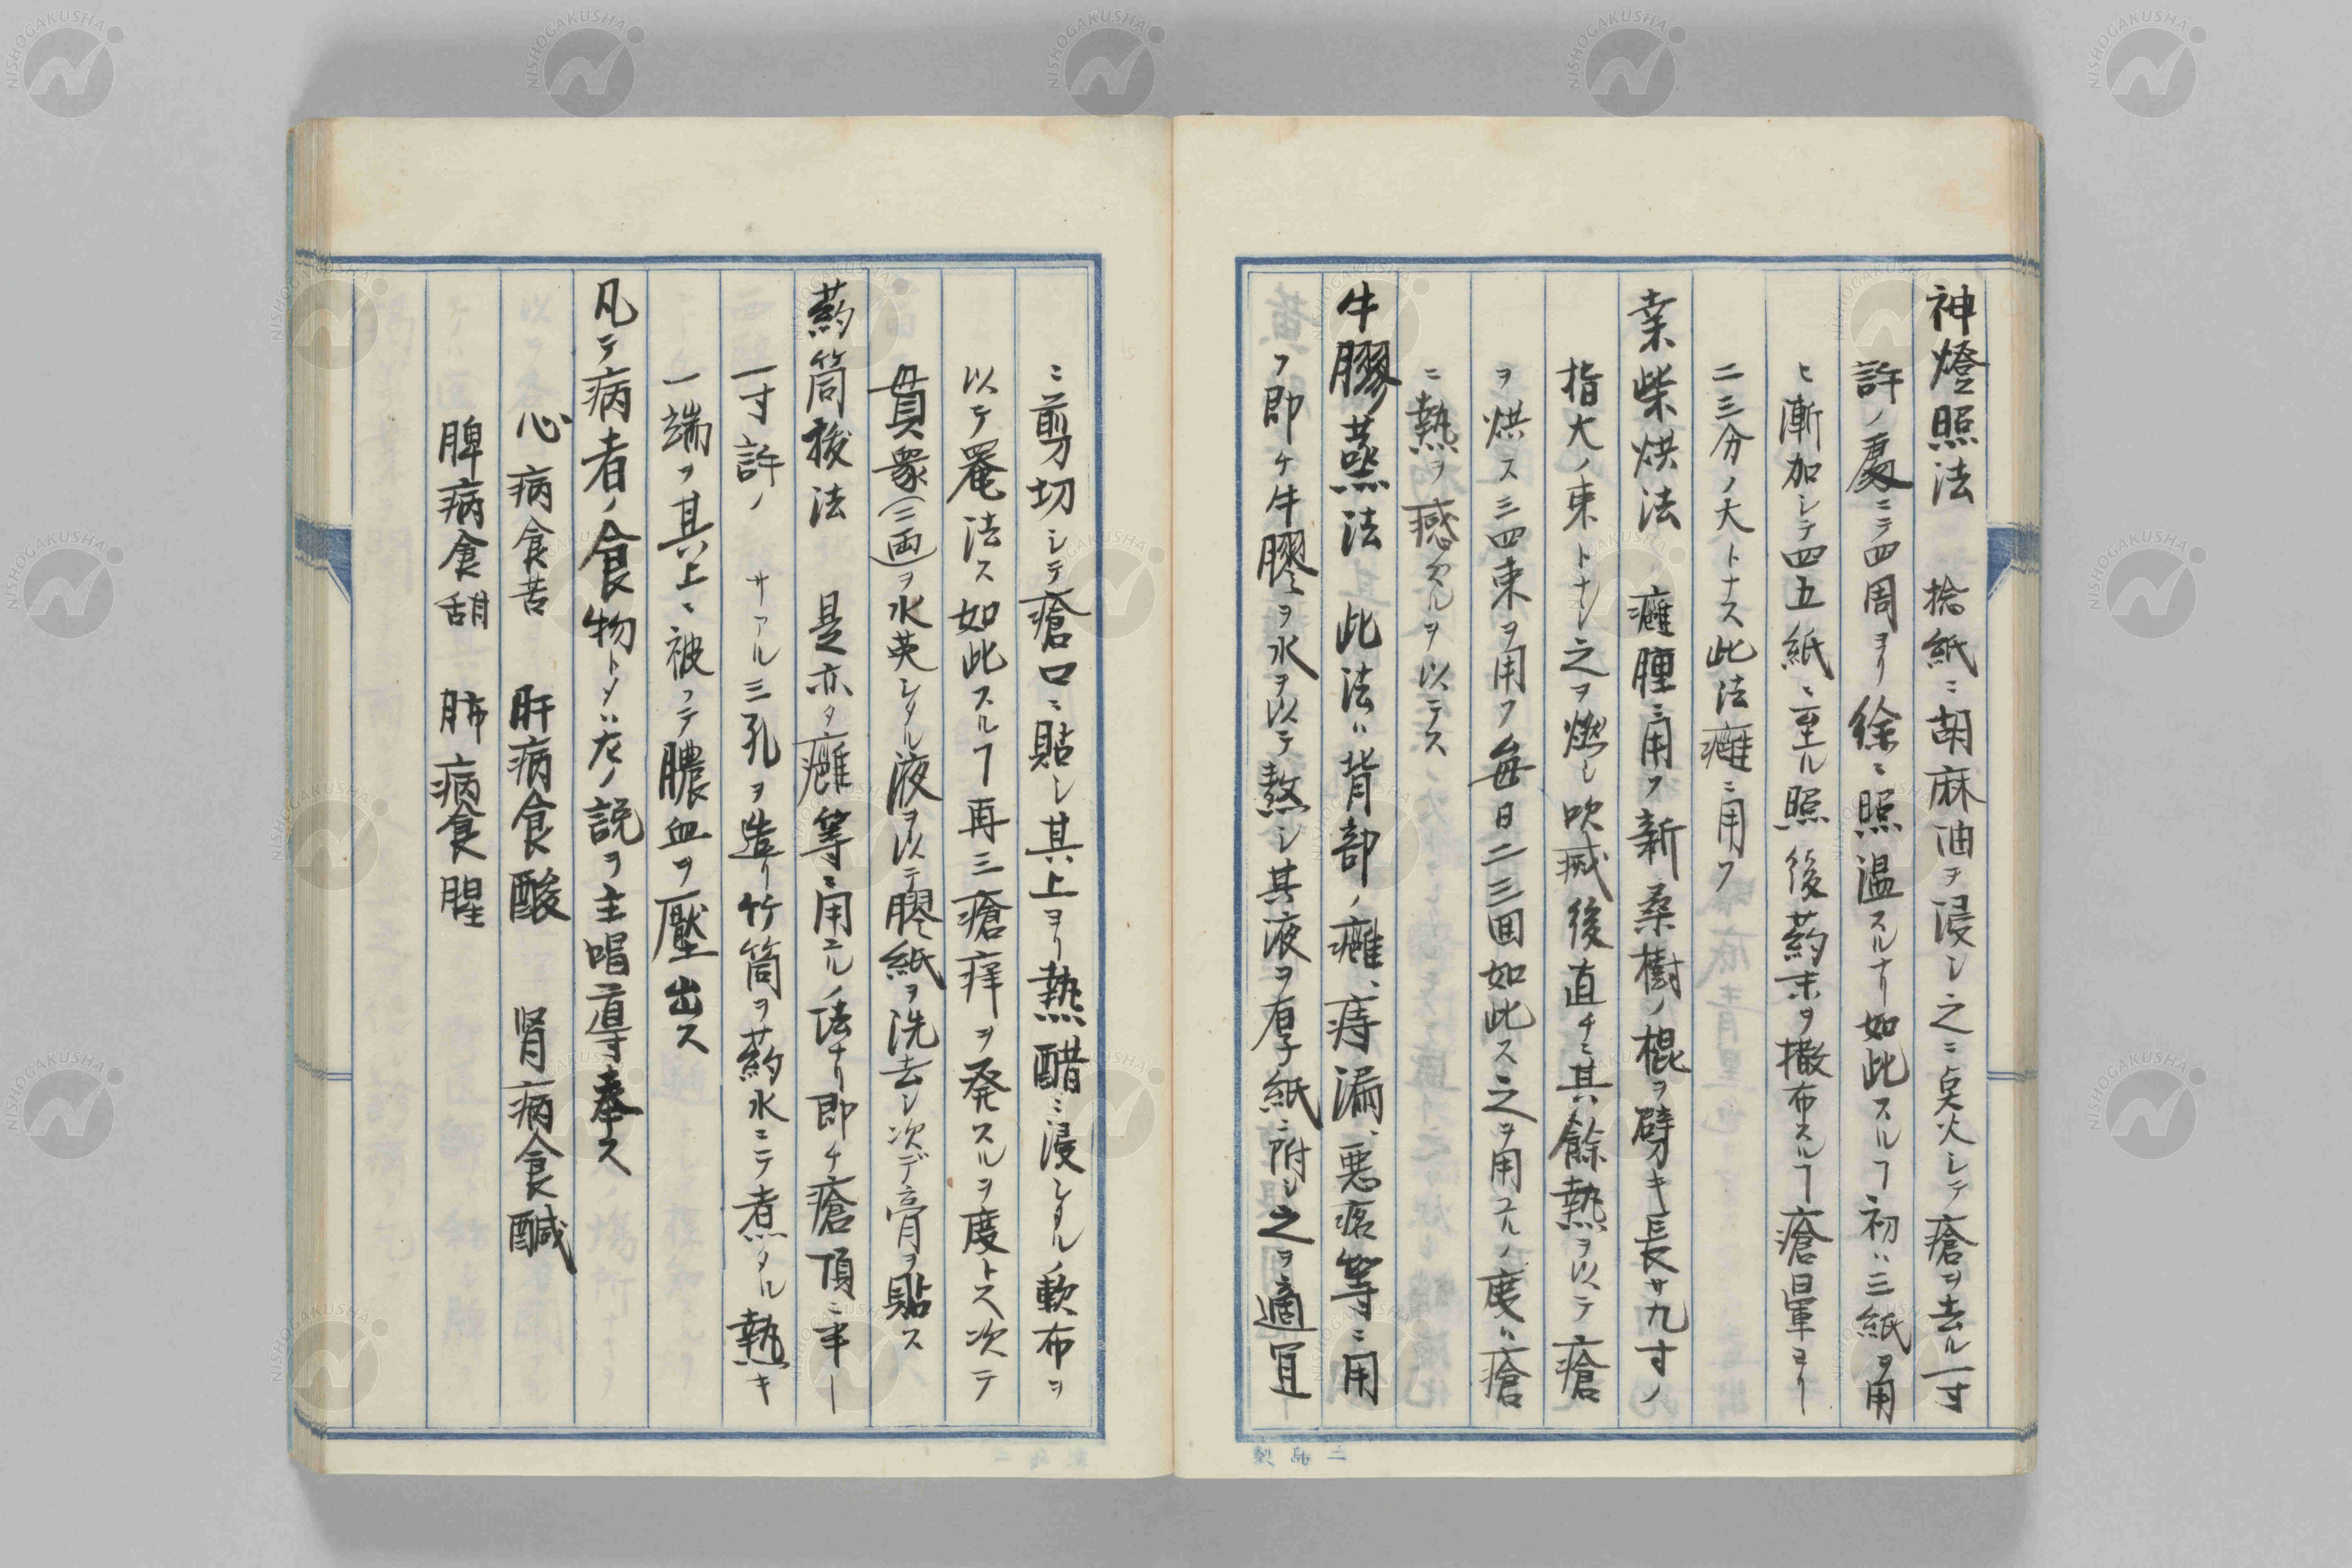 神燈照法 捻紙ニ胡麻油ヲ浸シ之ニ点火シテ瘡ヲ去ル一寸
許ノ処ニテ四周ヨリ徐ニ照温スルナリ如此スルヿ初ハ三紙ヲ用
ヒ漸加シテ四五紙ニ至ル照後葯末ヲ撒布スルヿ瘡暈ヨリ
二三分ノ大トナス此法癰ニ用フ
桒柴烘法 癰腫ニ用フ新桑樹ノ棍ヲ劈キ長サ九寸ノ
指大ノ束トナシ之ヲ燃シ吹滅後直チニ其餘熱ヲ以テ瘡
ヲ烘ス三四束ヲ用フ毎日二三回如此ス之ヲ用ユルノ度ハ瘡
ニ熱ヲ感スルヲ以テス
牛膠蒸法 此法ハ背部ノ癰、痔漏、悪瘡等ニ用
フ即チ牛膠ヲ水ヲ以テ熬シ其液ヲ厚紙ニ附シ之ヲ適宜
ニ剪切シテ瘡口ニ貼シ其上ヨリ熱醋ニ浸シタル軟布ヲ
以テ罨法ス如此スルヿ再三瘡痒ヲ発スルヲ度トス次テ
貫衆(二両)ヲ水煎シタル液ヲ以テ膠紙ヲ洗去シ次デ膏ヲ貼ス
葯筒抜法 是亦タ癰等ニ用ユルノ法ナリ即チ瘡頂ニ半ー
一寸許ノ サアル三孔ヲ造リ竹筒ヲ葯水ニテ煮タル熱キ
一端ヲ其上ニ被フテ膿血ヲ壓出ス
凡テ病者ノ食物トメハ左ノ説ヲ主唱遵奉ス
心病食苦 肝病食酸 腎病食鹹
脾病食甜 肺病食腥
三島製